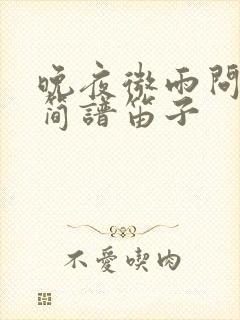 晚夜微雨問
简譜笛子
不愛喫肉